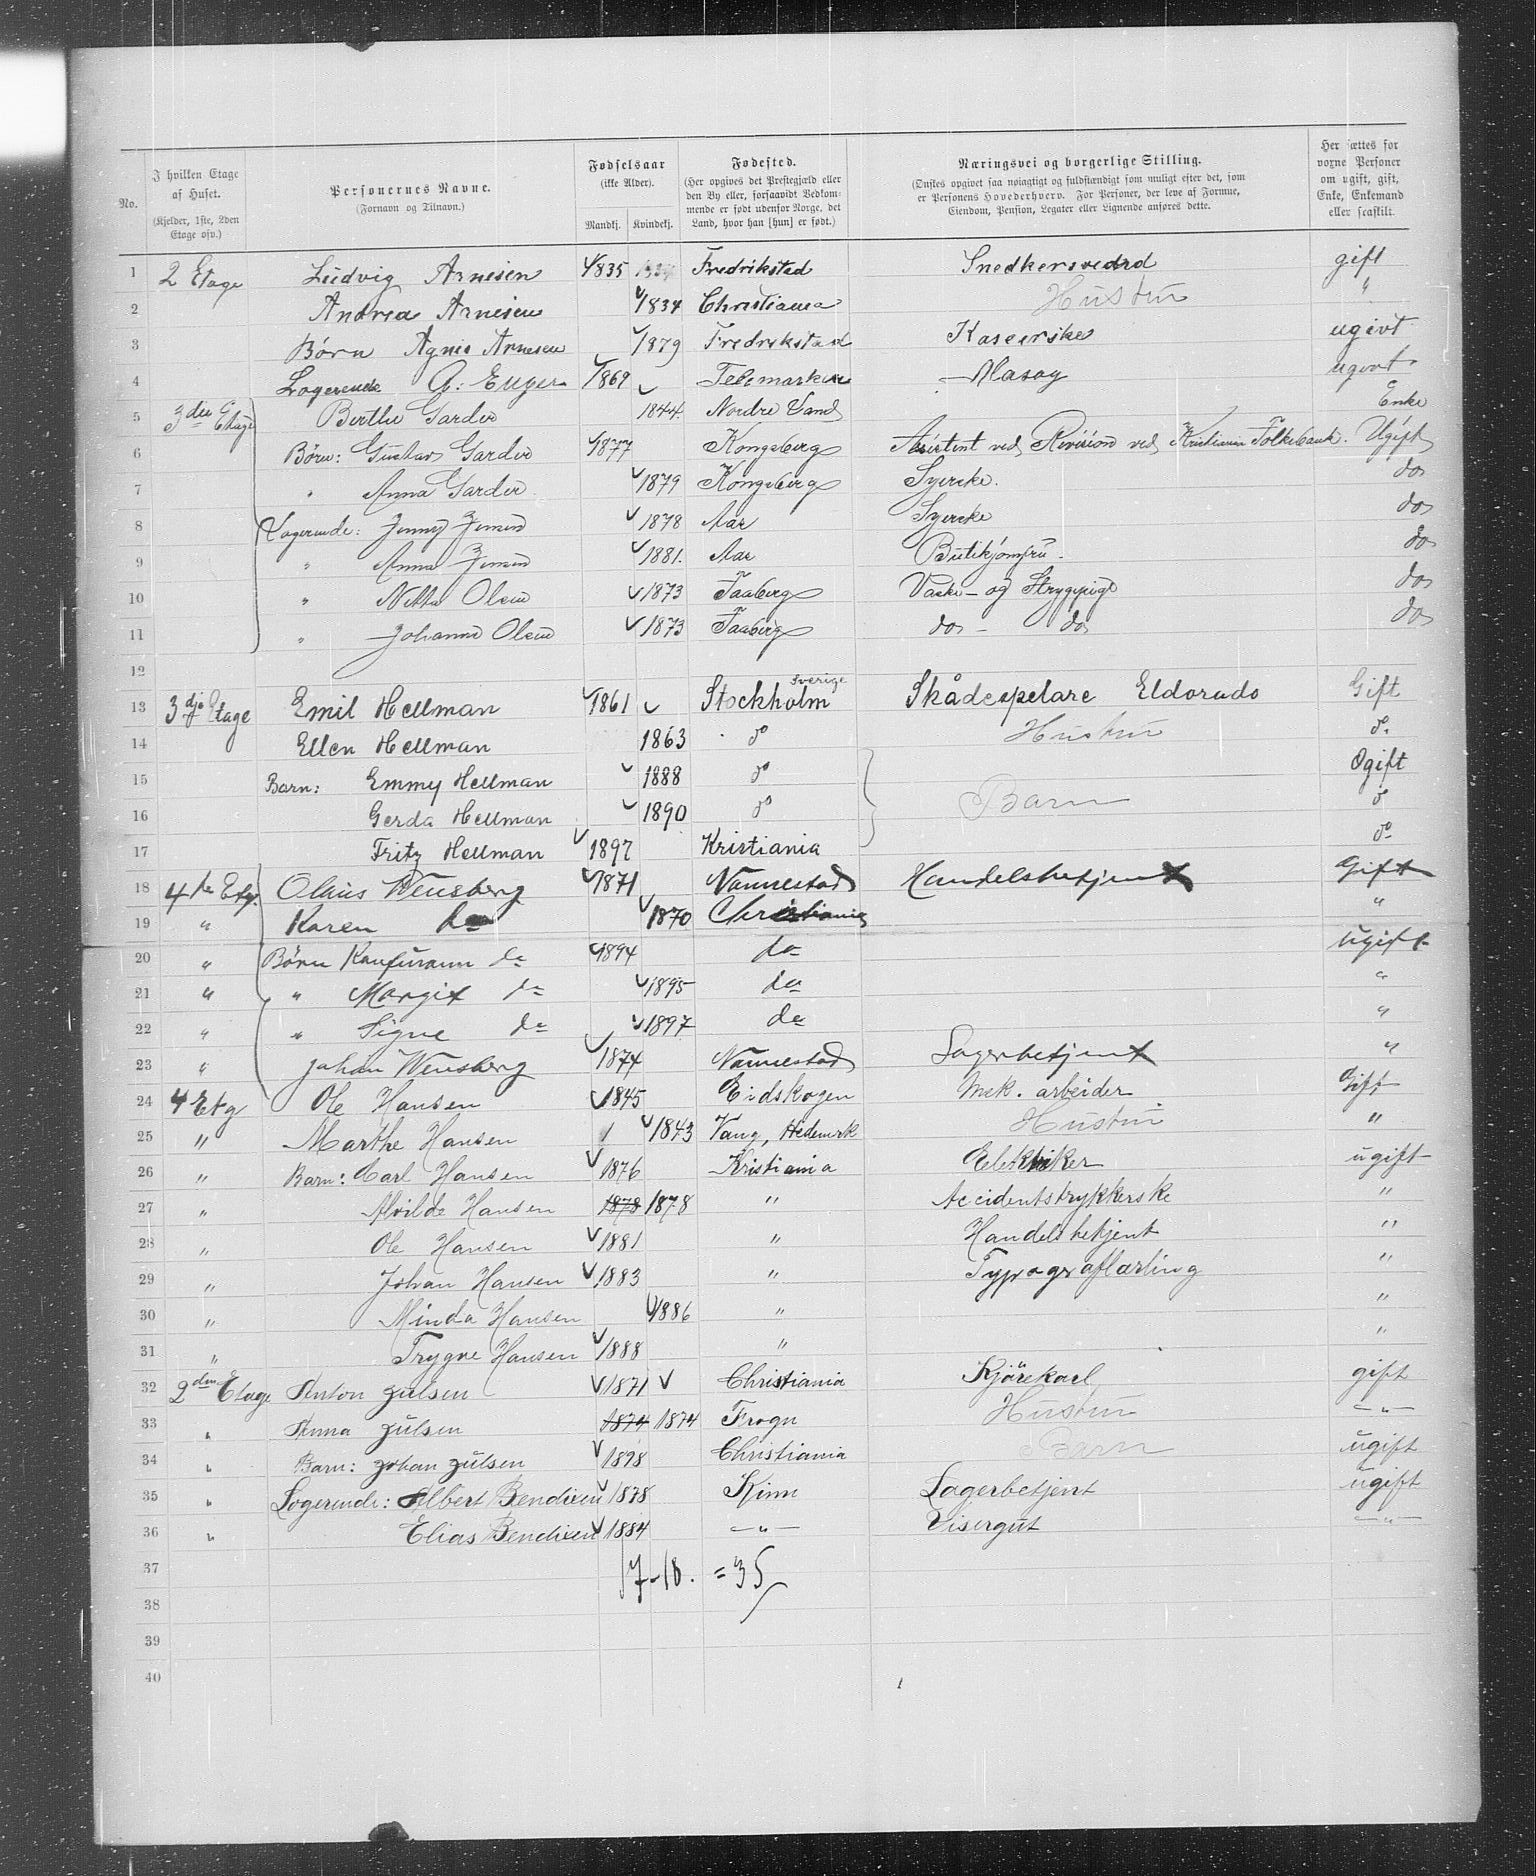 No.
I hvilken Etage af Huset. (Kjelder, 1ste, 2den Etage osv.)
Personernes Navne. (Fornavn og Tilnavn.)
Fødselsaar (ikke Alder). Mandkj. Kvindekj.
Fødested. (Her opgives det Prestegjæld eller den By eller, forsaavidt Vedkommende er født udenfor Norge, det Land, hvor han [hun] er født.)
Næringsvei og borgerlige Stilling. (Ønskes opgivet saa nøiagtigt og fuldstændigt som muligt efter det, som er Personens Hovederhverv. For Personer, der leve af Formue, Eiendom, Pension, Legater eller Lignende anføres dette.)
Her sættes for voxne Personer om ugift, gift, Enke, Enkemand eller fraskilt.
1 2 Etage Ludvig Arnesen 1835 Fredrikstad Snedkersvend gift
2 Andrea Arnesen 1834 Christiania Hustru "
3 Børn Agnes Arnesen 1879 Fredrikstad Kaseerske ugivt
4 Logerende A: Enger 1869 Telemarken Masøg ugivt
5 3die Etage Berthe Garder 1844 Nordre Land Enke
6 Børn: Gustav Garder 1877 Kongsberg Assistent ved Revision ved Kristiania Folkebank. Ugift
7 " Anna Garder 1879 Kongsberg Syerske. do
8 Logerende: Jenny Jensen 1878 Aar Syerske do
9 " Anna Jensen 1881. Aar Butikjomfru. do
10 " Netta Olsen 1873 Faaberg Vaske- og Strygepige do
11 " Johanne Olsen 1873 Faaberg do - do do
12
13 3dje Etage Emil Hellman 1861 Stockholm Sverige Skådespelare Eldorado Gift
14 Ellen Hellman 1863 do Hustru do
15 Barn: Emmy Hellman 1888 do Ogift
16 Gerda Hellman 1890 do Barn do
17 Fritz Hellman 1897 Kristiania do
18 4de Etg. Olaus Wensberg 1871 Nannestad Handelsbetjent Gift
19 " Karen do 1870 Christiania "
20 " Børn Kaufmann do 1894 do ugift
21 " " Margit do 1895 do "
22 " " Signe do 1897 do "
23 " Johan Wensberg 1874 Nannestad Lagerbetjent "
24 4 Etg Ole Hansen 1845 Eidskogen Mek. arbeider Gift
25 " Marthe Hansen 1843 Vang, Hedemrk Hustru "
26 " Barn: Carl Hansen 1876 Kristiania Elektriker ugift
27 " Alvilde Hansen 1878 1878 " Accidentstrykkerske "
28 " Ole Hansen 1881 " Handelsbetjent "
29 " Johan Hansen 1883 " Typograflærling "
30 " Minda Hansen 1886 " "
31 " Trygve Hansen 1888 " "
32 2den Etage Anton Julsen 1871 Christiania Kjørekarl gift
33 " Anna Julsen 1874 1874 Frogn Hustru - " -
34 " Barn: Johan Julsen 1898 Christiania Barn ugift
35 " Logerende: Albert Bendixen 1878 Kinn Lagerbetjent ugift
36 " Elias Bendixen 1884 - " - Visergut - " -
37 17-18. = 35
38
39
40